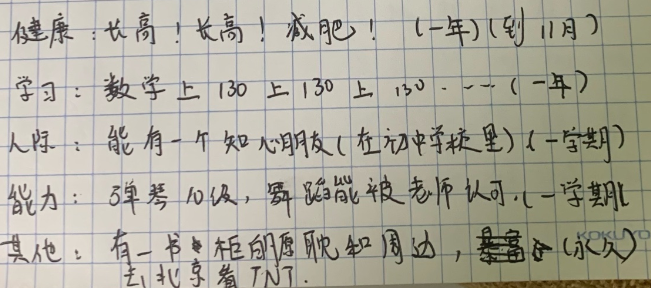 健康：长高！长高！减肥！（一年）（到11月）
学习：数学上130上130上130……（一年）
人际：能有一个知心朋友（在初中学校里）（一学期）
能力：弹琴10级，舞蹈能被老师认可.（一学期）
其他：有一书柜的愿耽和周边，（永久）
KOKUYO
去北京看TNT.